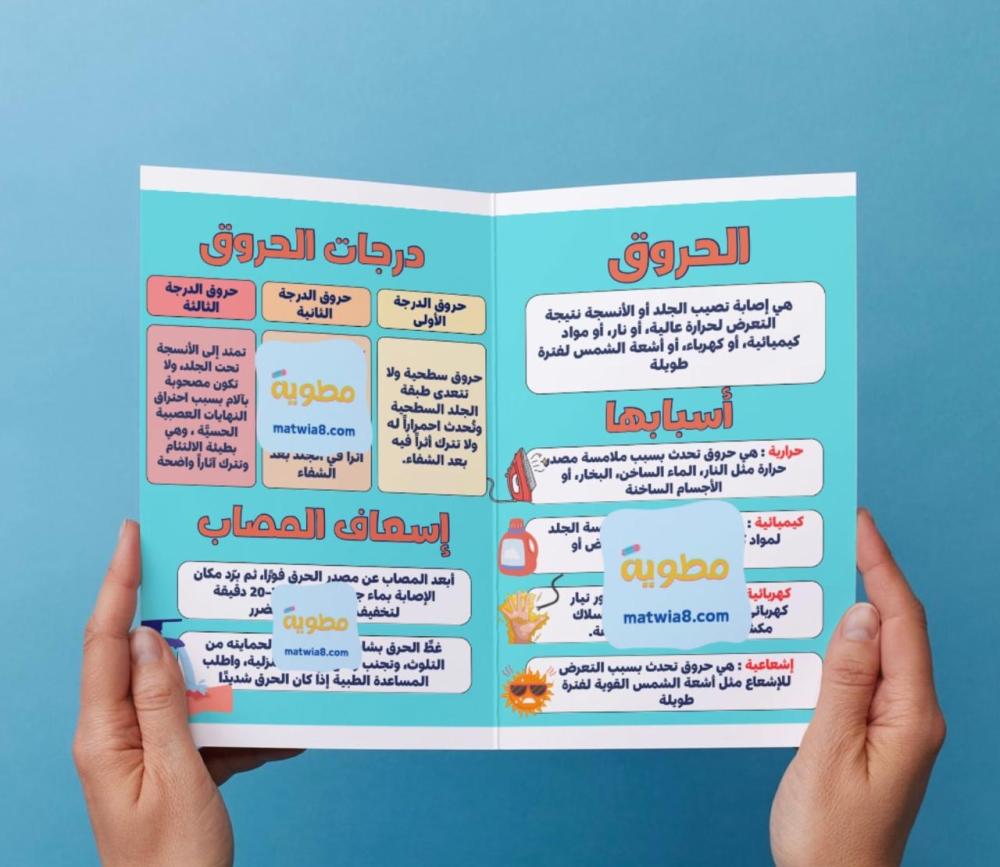 الحروق
هي إصابة تصيب الجلد أو الأنسجة نتيجة
التعرض لحرارة عالية، أو نار، أو مواد
كيميائية، أو كهرباء، أو أشعة الشمس لفترة
طويلة
أسبابها
حرارية : هي حروق تحدث بسبب ملامسة مصدر
حرارة مثل النار، الماء الساخن، البخار، أو
الأجسام الساخنة
كيميائية : الجلد
أو
مطوية
matwia8.com
كهربائية تيار
إشعاعية : هي حروق تحدث بسبب التعرض
للإشعاع مثل أشعة الشمس القوية لفترة
طويلة
درجات الحروق
حروق الدرجة
الأولى
حروق سطحية ولا
تتعدى طبقة
الجلد السطحية
وتُحدث احمراراً له
ولا تترك أثراً فيه
بعد الشفاء.
حروق الدرجة
الثانية
مطوية
matwia8.com
أثراً في الجلد بعد
الشفاء
حروق الدرجة
الثالثة
تمتد إلى الأنسجة
تحت الجلد، ولا
تكون مصحوبة
بآلام بسبب احتراق
النهايات العصبية
الحسيَّة ، وهي
بطيئة الالتئام
وتترك آثاراً واضحة
إسعاف المصاب
أبعد المصاب عن مصدر الحرق فورًا، ثم برّد مكان
الإصابة بماء 20 دقيقة
لتخفيف
مطوية
matwia8.com
غطِّ الحرق لحمايته من
التلوث، وتجنب واطلب
المساعدة الطبية إذا كان الحرق شديدًا